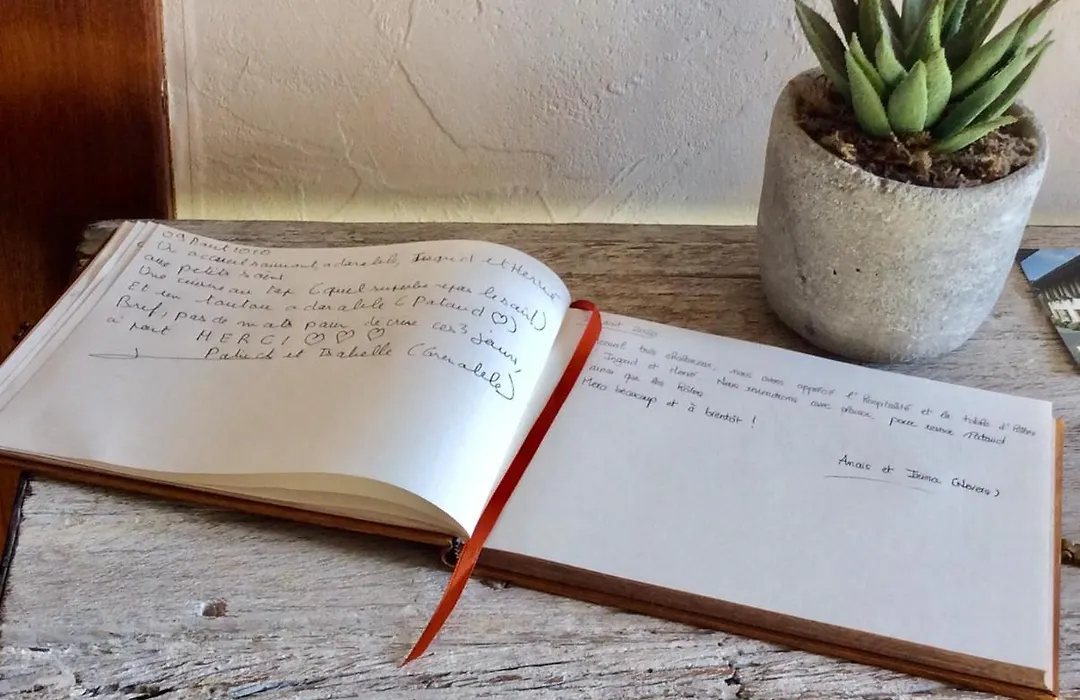 09 Aout 2020
Un accueil vraiment adorable, Ingrid et Hervé
aux petits soins
Une cuisine au top (quel superbe repas le soir!)
Et un toutou adorable (Pataud ♡)
Bref, pas de mots pour décrire ces 3 jours,
à part MERCI ♡ ♡ ♡
Patrick et Isabelle (Grenoble)
août 2020
Accueil très chaleureux, nous avons apprécié l'hospitalité et la table d'hôtes
Ingrid et Hervé. Nous reviendrons avec plaisir, pour revoir Pataud
ainsi que les hôtes
Merci beaucoup et à bientôt !
Anaïs et (Nevers)